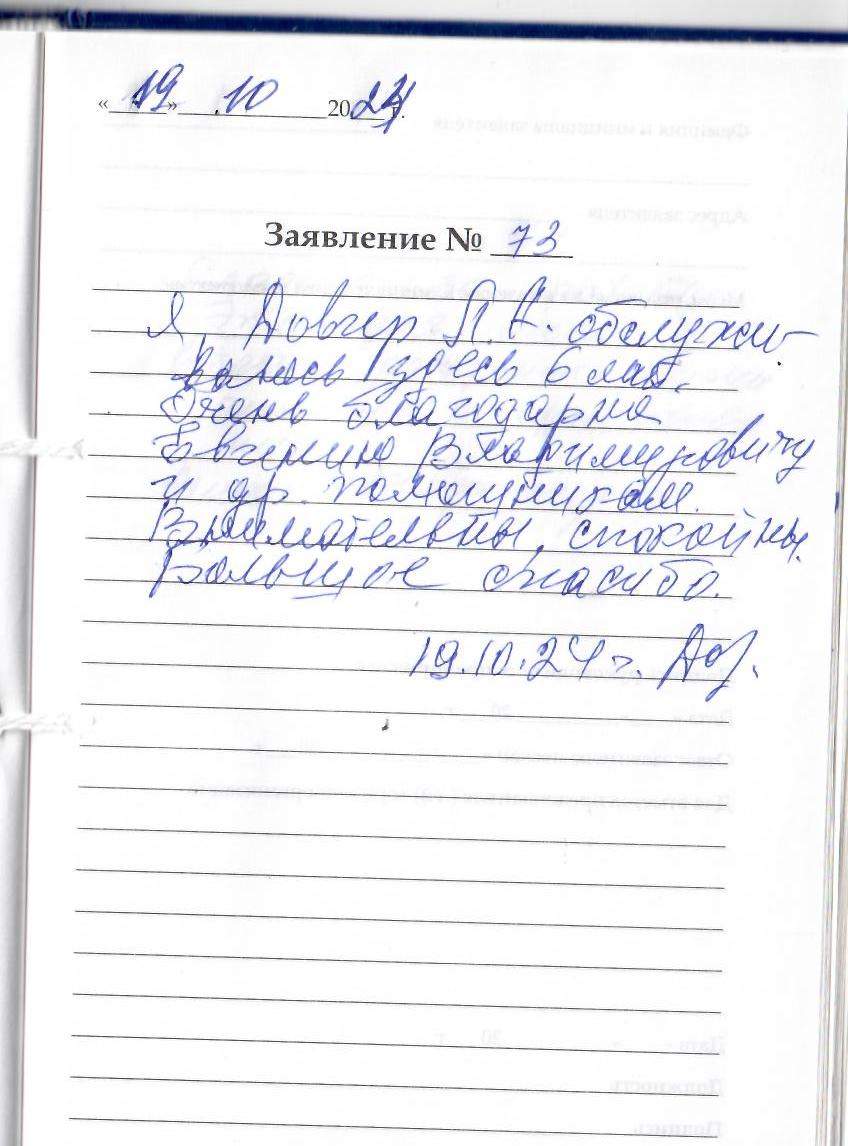 «19» 10 2024 г.
Заявление № 73
Я, Довгер Л.А. обслужи-
ваюсь здесь 6 лет.
Очень благодарна
Евгению Владимировичу
и др. помощникам.
Внимательны, спокойны.
Большое спасибо.
19.10.24 г.